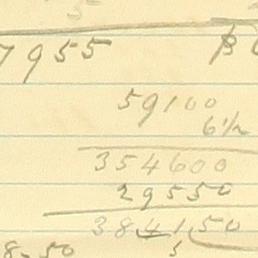 5
7955
59100
6½
354600
29550
384150
5
8-50